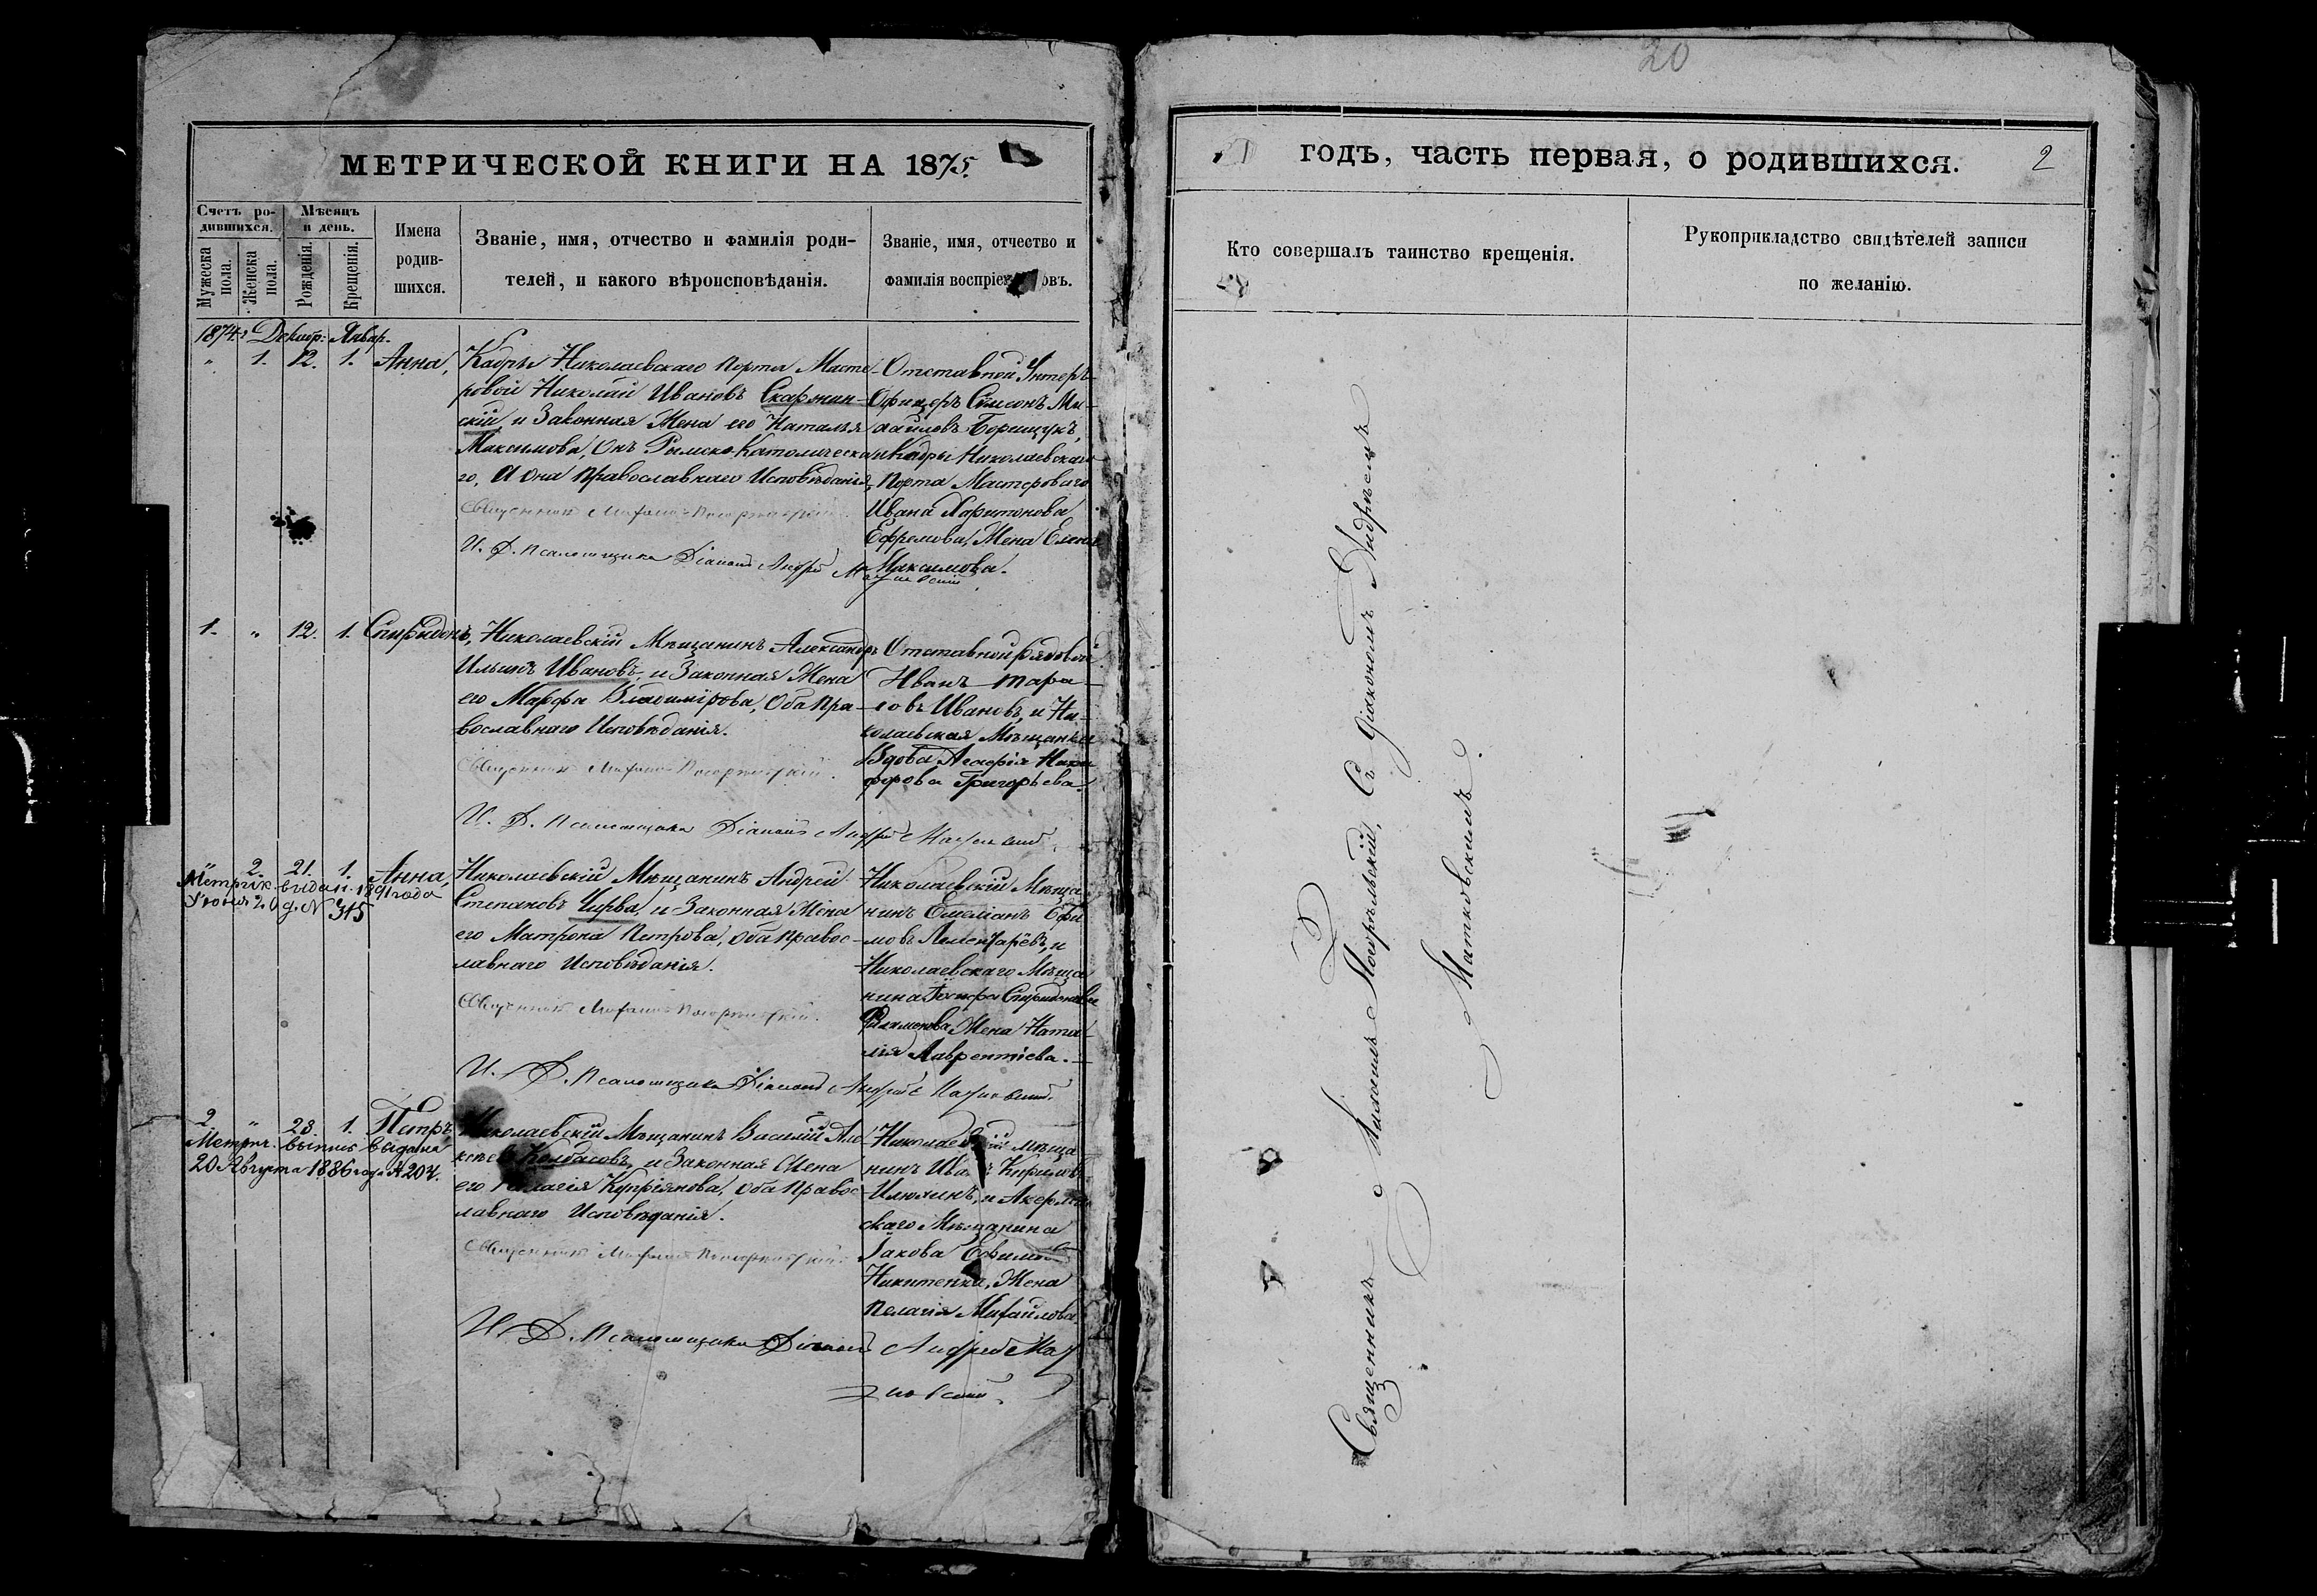 20
МЕТРИЧЕСКОЙ КНИГИ НА 1875.
Счетъ ро-
дившихся.
Мѣсяцъ
и день.
Мужеска
пола.
Женска
пола.
Рожденія.
Крещенія.
Имена
родив-
шихся.
Званіе, имя, отчество и фамилія роди-
телей, и какого вѣроисповѣданія.
Званіе, имя, отчество и
фамилія воспріе овъ.
1874 г. Декабр: Январ.
" 1. 12. 1. Анна,
Кадры Николаевскаго Порта Масте-
ровой Николай Ивановъ Скаржин-
скій и Законная Жена его Наталья
Максимова, Онъ Римско-Католическа-
го, А Она Православнаго Исповѣданія,
Священникъ
И. Д. Псаломщика Діаконъ Андрей
Отставной Унтеръ-
Офицеръ Симеонъ Ми-
хайловъ Борищукъ,
и Кадры Николаевскаго
Порта Мастероваго
Ивана Харитонова
Ефремова, Жена Елена
Максимова.
1. " 12. 1. Спиридонъ,
Николаевскій Мѣщанинъ Александръ
Ильинъ Ивановъ, и Законная Жена
его Марфа Владимірова, Оба Пра-
вославнаго Исповѣданія.
Священникъ
И. Д. Псаломщика Діаконъ Андрей
Отставной рядовой
Иванъ Тара-
совъ Ивановъ, и Ни-
колаевская Мѣщанка
Вдова Ники-
форова Григорьева.
" 2. 21. 1. Анна,
Метрик. выдан. 1891 года
Іюня 20 д. N 315
Николаевскій Мѣщанинъ Андрей
Степановъ Чирва, и Законная Жена
его Матрона Петрова, оба Правос-
лавнаго Исповѣданія.
Священникъ
И. Д. Псаломщика Діаконъ Андрей
Николаевскій Мѣща-
нинъ Емеліанъ Ефи-
мовъ и
Николаевскаго Мѣща-
нина Петра Спиридонова
Филимонова Жена Ната-
лія Лаврентіева.
2. " 23. 1. Петръ,
Метрич. выпис выдана
20 Августа 1886 года N 204.
Николаевскій Мѣщанинъ Василій Але-
ксѣевъ Колбасовъ, и Законная Жена
его Пелагія Купріянова, оба Правос-
лавнаго Исповѣданія.
Священникъ
И. Д. Псаломщика Діаконъ Андрей
Николаевскій мѣща-
нинъ Иванъ Кириловъ
Илюхинъ, и Акерман-
скаго Мѣщанина
Іакова Ефимова
Никитенка, Жена
Пелагія Михайлова.
годъ, часть первая, о родившихся.
2
Кто совершалъ таинство крещенія.
Рукоприкладство свидѣтелей записи
по желанію.
Священникъ Михаилъ Погорѣльскій, Съ Діакономъ Андреемъ
Матковскимъ.